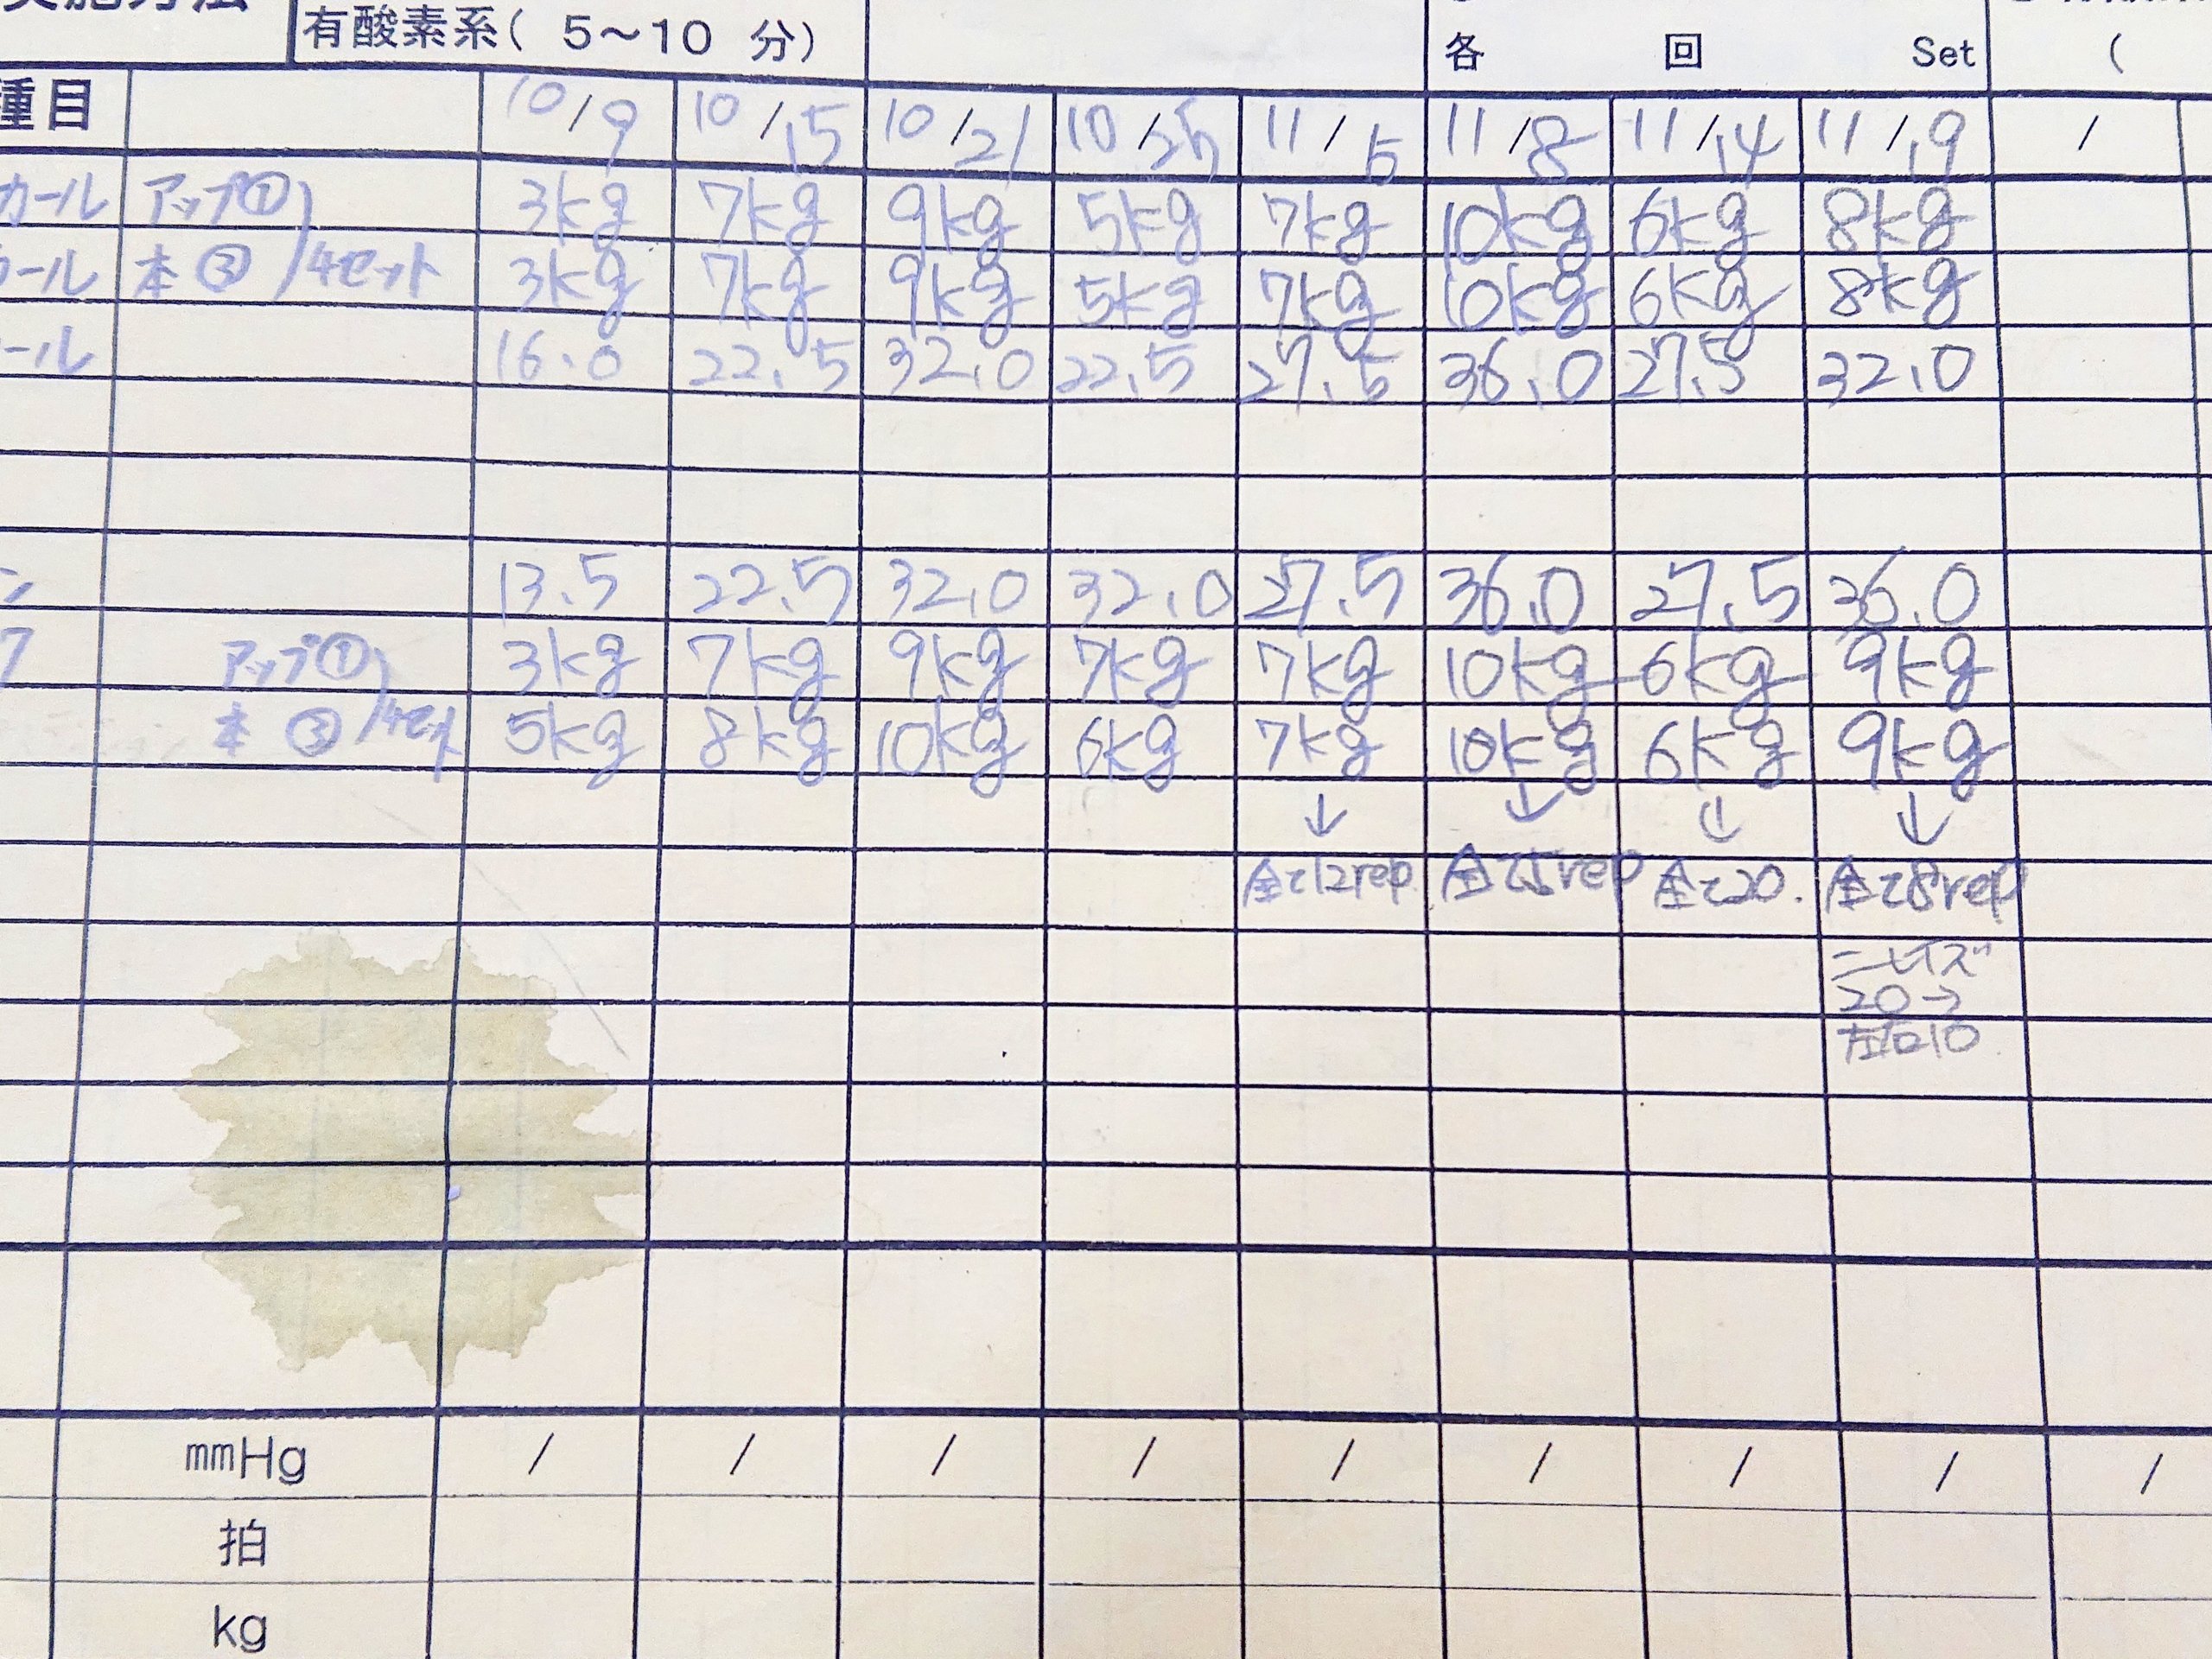 有酸素系( 5～10 分)
各 回 Set (
種目 10/9 10/15 10/21 10/25 11/5 11/8 11/14 11/19 /
カール アップ① 3kg 7kg 9kg 5kg 7kg 10kg 6kg 8kg
カール 本③ 4セット 3kg 7kg 9kg 5kg 7kg 10kg 6kg 8kg
ール 16.0 22.5 32.0 22.5 27.5 36.0 27.5 32.0
ン 13.5 22.5 32.0 32.0 27.5 36.0 27.5 36.0
アップ① 3kg 7kg 9kg 7kg 7kg 10kg 6kg 9kg
本③ 4セット 5kg 8kg 10kg 6kg 7kg 10kg 6kg 9kg
↓ ↓ ↓ ↓
全て12rep 全て5rep 全て20. 全て8rep
ニーレイズ
20→
左右10
mmHg / / / / / / / / /
拍
kg